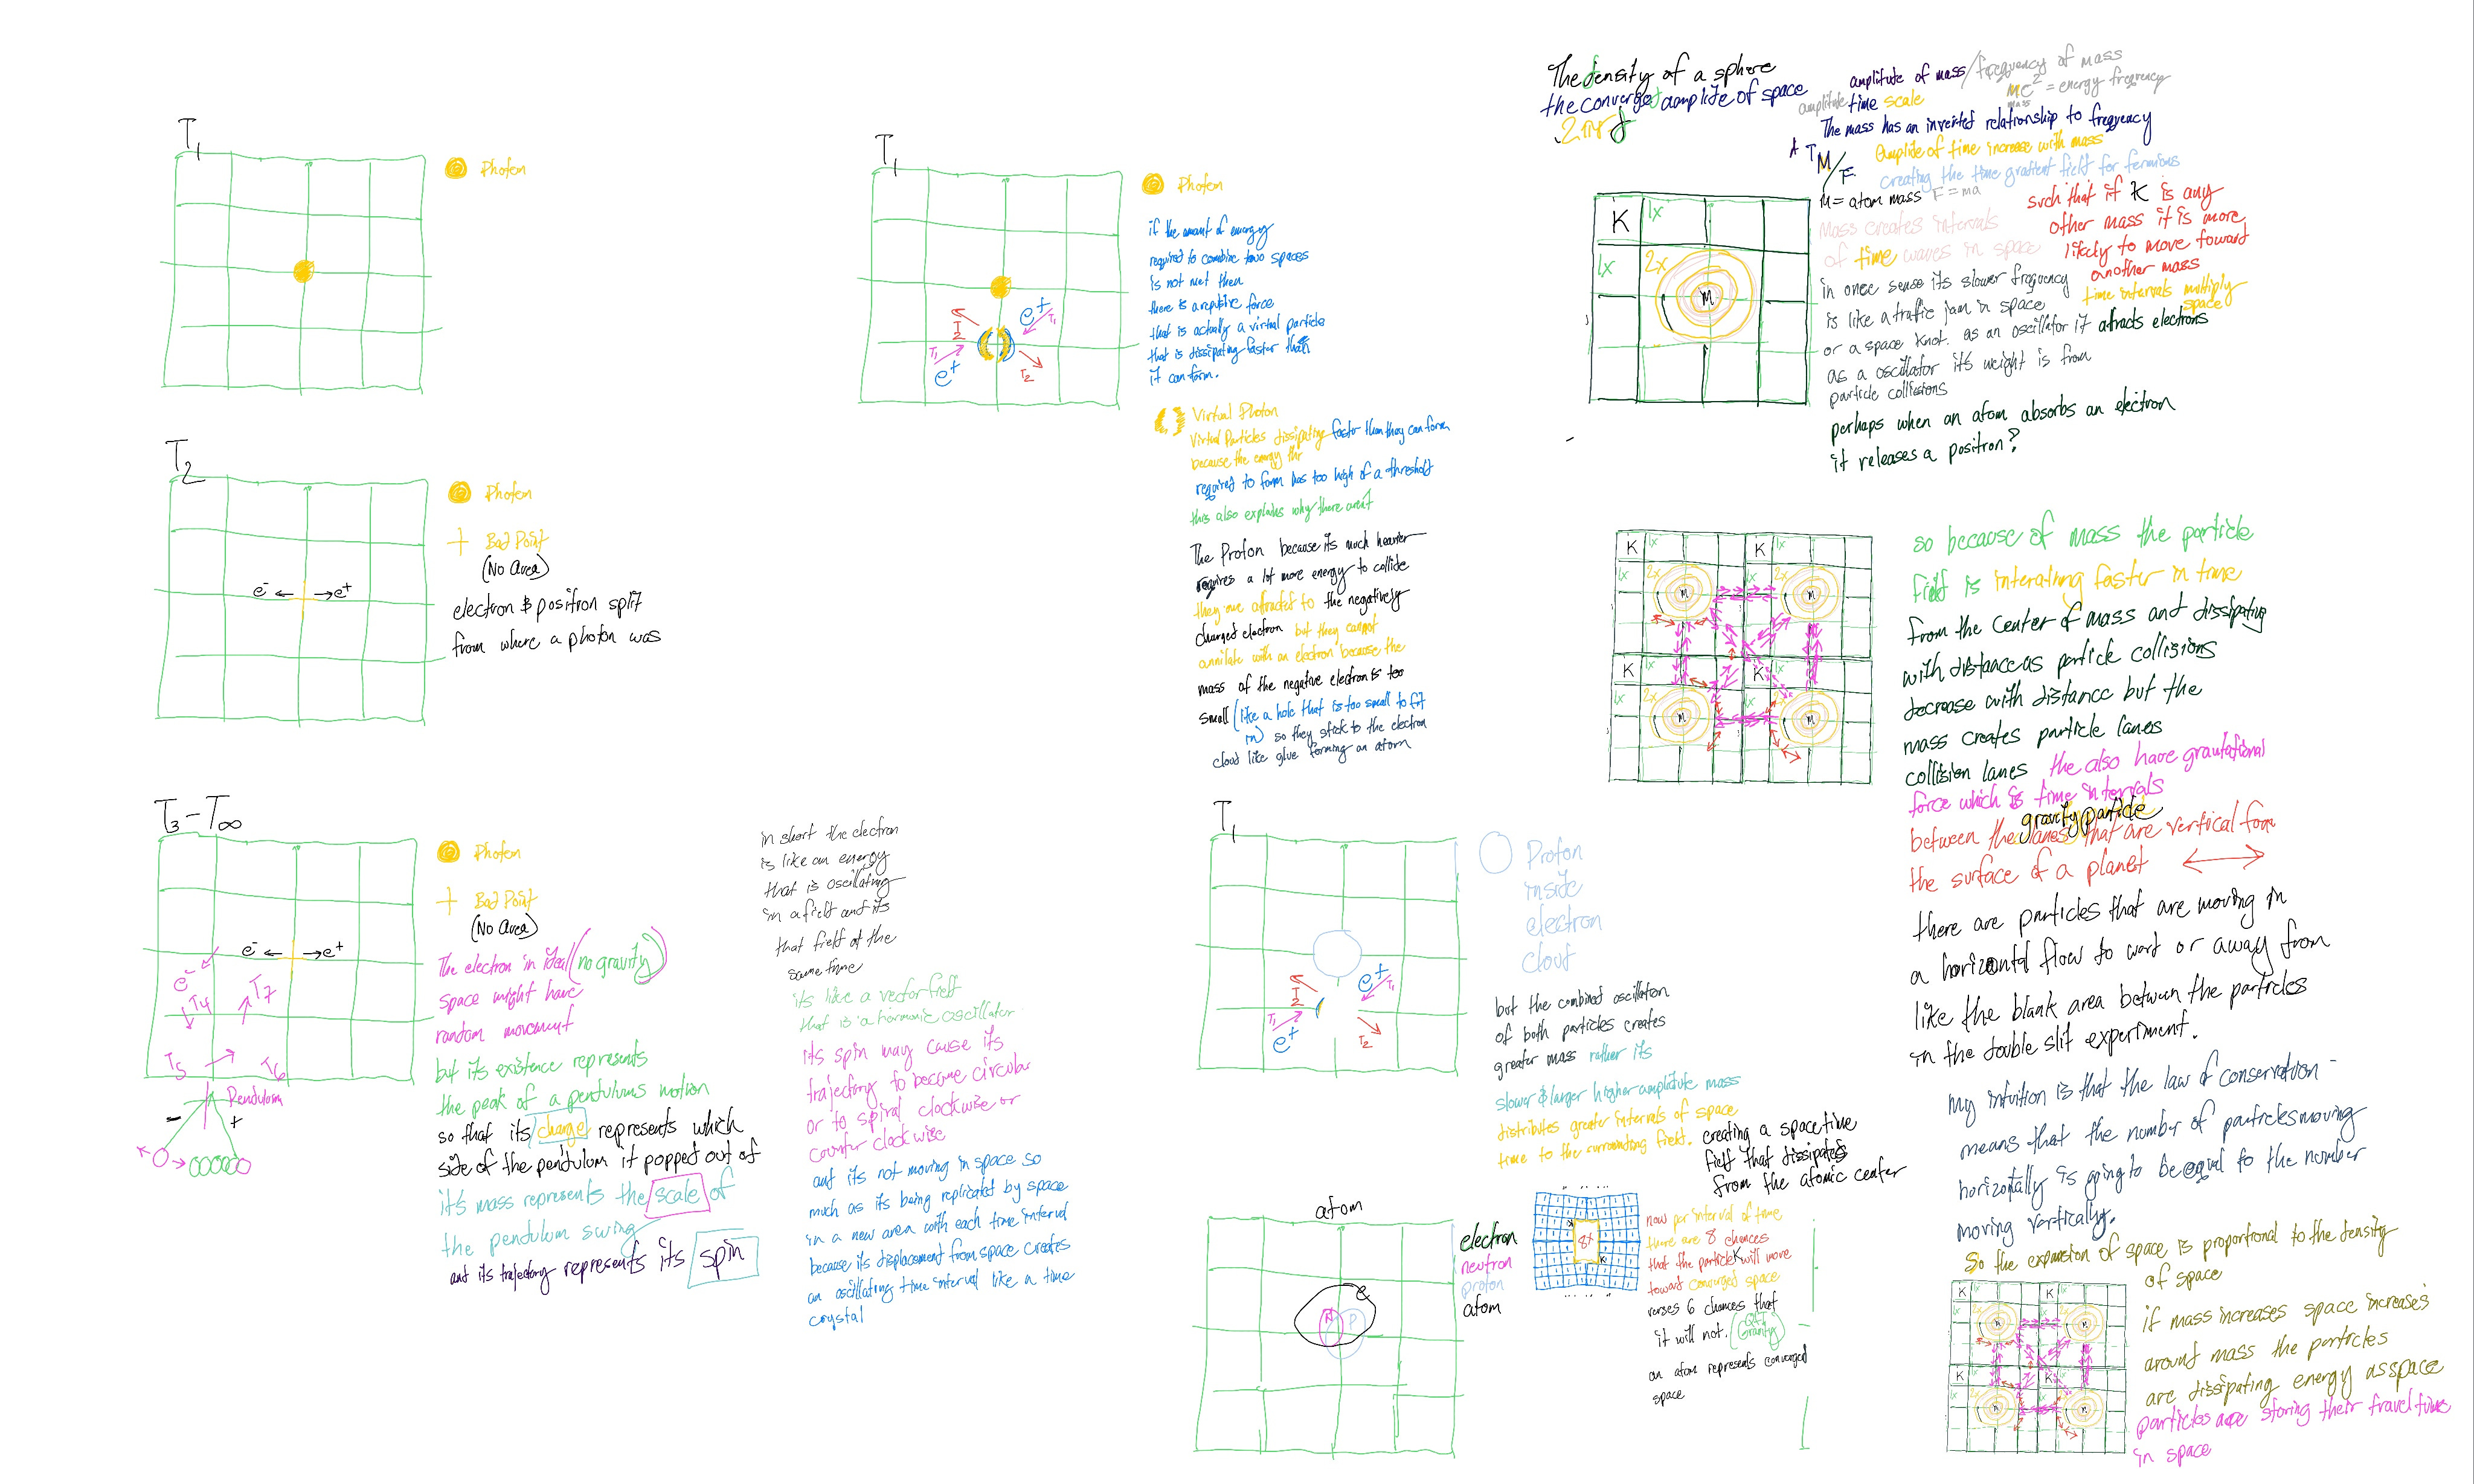 T1
Photon
T2
Photon
Bad Point
(No Area)
e- ← → e+
electron & positron split
from where a photon was
T3 - T∞
Photon
Bad Point
(No Area)
e- ← → e+
e-
T4
T7
T5
T6
Pendulum
-
+
The electron in ideal (no gravity)
space might have
random movement
but its existence represents
the peak of a pendulums motion
so that its charge represents which
side of the pendulum it popped out of
it's mass represents the scale of
the pendulum swing
and its trajectory represents its spin
in short the electron
is like an energy
that is oscillating
in a field and its
that field at the
same time
its like a vector field
that is a harmonic oscillator
its spin may cause its
trajectory to become circular
or to spiral clockwise or
counter clockwise
and its not moving in space so
much as its being replicated by space
in a new area with each time interval
because its displacement from space creates
an oscillating time interval like a time
crystal
T1
Photon
e+
T1
T2
T1
e+
T2
if the amount of energy
required to combine two spaces
is not met then
there is a repulsive force
that is actually a virtual particle
that is dissipating faster than
it can form.
Virtual Photon
Virtual Particles dissipating faster than they can form
because the energy thr
required to form has too high of a threshold
this also explains why there arent
The Proton because its much heavier
requires a lot more energy to collide
they are attracted to the negatively
charged electron but they cannot
annilate with an electron because the
mass of the negative electron is too
small (like a hole that is too small to fit
in) so they stick to the electron
cloud like glue forming an atom
T1
Proton
inside
electron
cloud
e+
T1
T2
T1
e+
T2
but the combined oscillation
of both particles creates
greater mass rather its
slower & larger higher amplitude mass
distributes greater intervals of space
time to the surrounding field. creating a spacetime
field that dissipates
from the atomic center
atom
e
N
P
electron
neutron
proton
atom
8x
K
now per interval of time
there are 8 chances
that the particle K will move
toward converged space
verses 6 chances that
it will not.
Gravity
an atom represents converged
space
The density of a sphere
the converged amplite of space
2πrd
amplitude of mass/frequency of mass
amplitude time scale
MC² = energy frequency
mass
The mass has an inverted relationship to frequency
A T M/F
Amplite of time increase with mass
creating the time gradient field for fermions
M = atom mass F = ma
Mass creates intervals
of time waves in space
such that if K is any
other mass it is more
likely to move toward
another mass
time intervals multiply
space
in once sense its slower frequency
is like a traffic jam in space
or a space knot. as an oscillator it attracts electrons
as a oscillator it's weight is from
particle collisions
perhaps when an atom absorbs an electron
it releases a positron?
K 1x
1x 2x
M
K 1x K 1x
1x 2x 1x 2x
M M
K 1x K 1x
1x 2x 1x 2x
M M
so because of mass the particle
field is interating faster in time
from the center of mass and dissipating
with distance as particle collisions
decrease with distance but the
mass creates particle lanes
collision lanes the also have gravitational
force which is time intervals
gravity particle
between the lanes that are vertical from
the surface of a planet ⟷
there are particles that are moving in
a horizontal flow to wart or away from
like the blank area between the particles
in the double slit experiment.
My intuition is that the law of conservation -
means that the number of particles moving
horizontally is going to be equal to the number
moving vertically.
So the expansion of space is proportional to the density
of space
if mass increases space increases
around mass the particles
are dissipating energy as space
particles are storing their travel time
in space
K 1x K 1x
1x 2x 2x
M M
K 1x K 1x
1x 2x 2x
M M